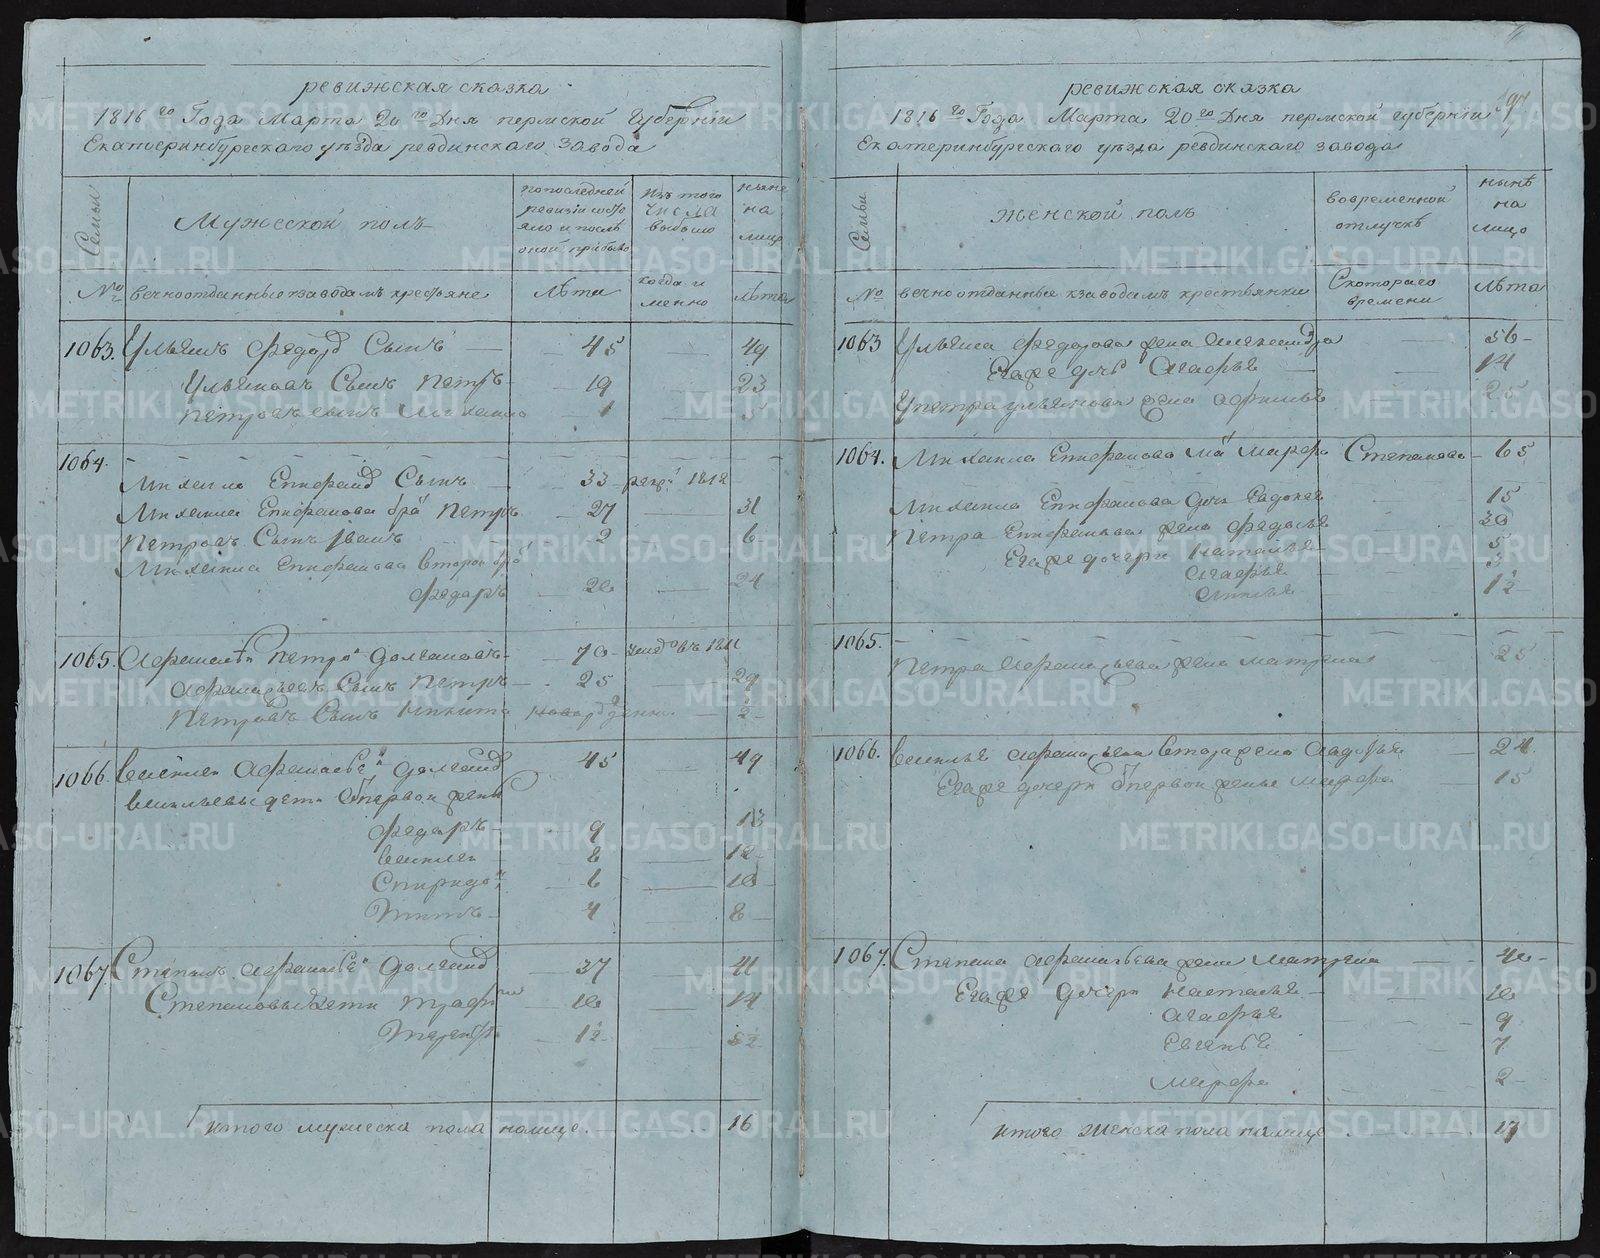 ревижская сказка
1816 го Года Марта 20 го Дня пермской Губернiи
Екатеринбургскаго уѣзда ревдинскаго завода
Семьи
Мужеской полъ
по последней ревизiи состояло и после оной прибыло
Изъ того числа выбыло
ныне на лицо
№
вечноотданные кзаводамъ крестьяне
Лѣта
когда и менно
Лѣта
1063. Ульянъ Федоровъ Сынъ — 45 — 49
Ульяновъ Сынъ Петръ — 19 — 23
Петровъ сынъ Михаило — 1 — 5
1064.
Михаило Епифановъ Сынъ — 33 рекру 1812
Михаила Епифанова бра Петръ — 27 — 31
Петровъ Сынъ Иванъ — 2 — 6
Михаила Епифанова второй бра
Федоръ — 20 — 24
1065. Афанасей Петро Долгановъ — 70 — 1811
Афанасьевъ Сынъ Петръ — 25 — 29
Петровъ Сынъ Никита новорожденной — 2
1066. Василей Афанасье Долгано 45 — 49
Васильевы дети Отпервой жены
Федоръ — 9 — 13
Василей — 8 — 12
Спиридо — 6 — 10
Титъ — 4 — 8
1067. Степанъ Афанасье Долгано 37 — 41
Степановы дети Трофи — 10 — 14
— 1½ — 5½
итого мужеска пола налицо 16
ревижская сказка
1816 го Года Марта 20 го Дня пермской губернiи
Екатеринбургскаго уѣзда ревдинскаго завода
Семьи
Женской полъ
вовременной отлучкѣ
нынѣ на лицо
№
вечноотданные кзаводамъ крестьянки
Скотораго времени
Лѣта
1063 Ульяна Федорова жена Александра — 56
Егоже дочь Агафья — 14
Упетра ульянова жена Афимья 25
1064. Михаила Епифанова ма Марфа Степанова — 65
Михаила Епифанова дочь — 15
Петра Епифанова жена Федосья — 30
Егоже дочери Наталья — 5
Агафья — 3
— 1½
1065.
Петра Афанасьева жена Матрена — 25
1066. Василья Афанасьева втора жена Федосья — 24
Егоже дочери Отпервой жены Марфа — 15
1067. Степана Афанасьева жена Матрена — 40
Егоже дочери Наталья — 10
Агафья — 9
Евгенья — 7
Марфа — 2
итого женска пола налицо 17
METRIKI.GASO-URAL.RU